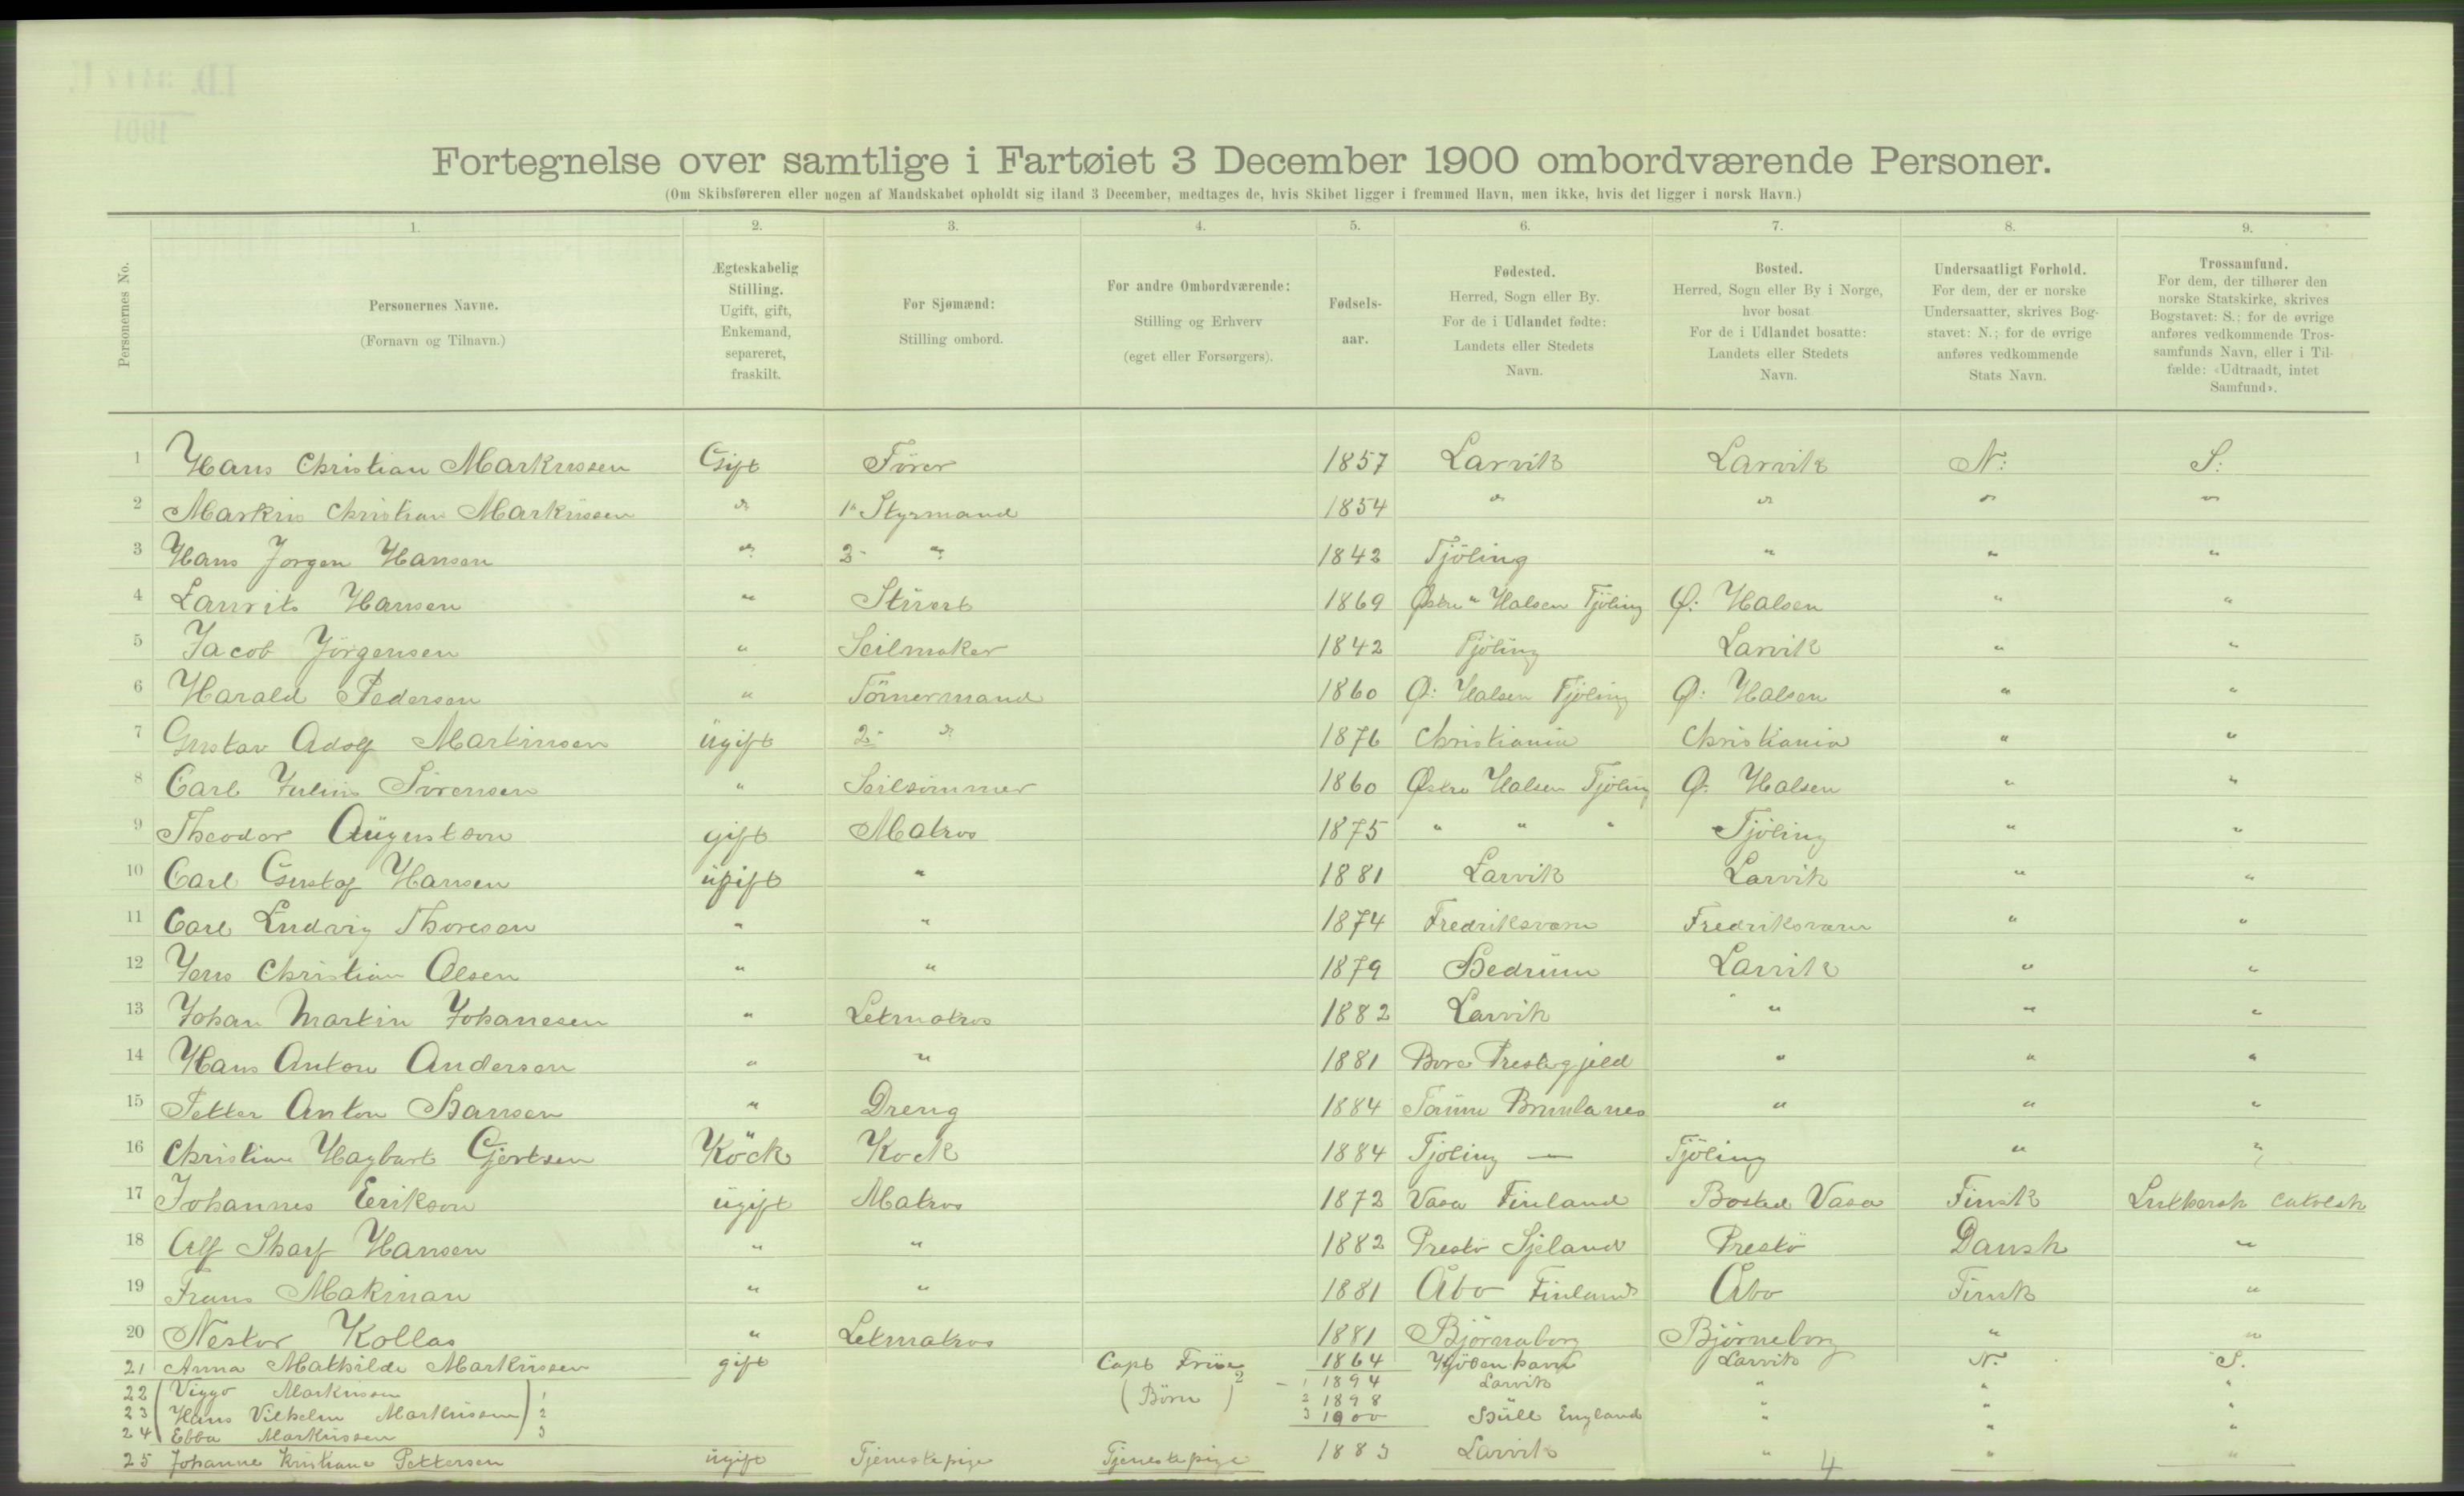 Fortegnelse over samtlige i Fartøiet 3 December 1900 ombordværende Personer.
(Om Skibsføreren eller nogen af Mandskabet opholdt sig iland 3 December, medtages de, hvis Skibet ligger i fremmed Havn, men ikke, hvis det ligger i norsk Havn.)
Personernes No.
1. Personernes Navne. (Fornavn og Tilnavn.)
2. Ægteskabelig Stilling. Ugift, gift, Enkemand, separeret, fraskilt.
3. For Sjømænd: Stilling ombord.
4. For andre Ombordværende: Stilling og Erhverv (eget eller Forsørgers).
5. Fødsels-aar.
6. Fødested. Herred, Sogn eller By. For de i Udlandet fødte: Landets eller Stedets Navn.
7. Bosted. Herred, Sogn eller By i Norge, hvor bosat For de i Udlandet bosatte: Landets eller Stedets Navn.
8. Undersaatligt Forhold. For dem, der er norske Undersaatter, skrives Bogstavet: N.; for de øvrige anføres vedkommende Stats Navn.
9. Trossamfund. For dem, der tilhører den norske Statskirke, skrives Bogstavet: S.; for de øvrige anføres vedkommende Trossamfunds Navn, eller i Tilfælde: «Udtraadt, intet Samfund».
1 Hans Christian Markussen Gift Fører 1857 Larvik Larvik N: S:
2 Markus Christian Markussen " 1ˢ Styrmand 1854 " " " "
3 Hans Jorgen Hansen " 2- " 1842 Tjöling " " "
4 Laurits Hansen " Stuert 1869 Østre " Halsen Tjöling Ø: Halsen " "
5 Jacob Jörgensen " Seilmaker 1842 Tjöling Larvik " "
6 Harald Pedersen " Tömermand 1860 Ø: Halsen Tjöling Ø: Halsen " "
7 Gustav Adolf Martinsen ugift 2- " 1876 Christiania Christiania " "
8 Carl Julius Sörensen " 1860 Østre Halsen Tjöling Ø. Halsen " "
9 Theodor Augustson gift Matros 1875 " " " Tjöling " "
10 Carl Gustaf Hansen ugift " 1881 Larvik Larvik " "
11 Carl Ludvig Thoresen " " 1874 Fredriksværn Fredriksværn " "
12 Jens Christian Olsen " " 1879 Hedrum Larvik " "
13 Johan Martin Johanesen " Letmatros 1882 Larvik " " "
14 Hans Anton Andersen " " 1881 Borre Prestegjeld " " "
15 Petter Anton Hansen " Dreng 1884 Taum Brunlanes " " "
16 Christian Hagbart Gjertsen Kock Kock 1884 Tjöling — Tjöling " "
17 Johannes Erikson ugift Matros 1872 Vasa Finland Bosted Vasa Finsk Luthersk catolsk
18 Alf Sharf Hansen " " 1882 Prestö Sjeland Prestö Dansk "
19 Frans Makinan " " 1881 Åbo Finland Åbo Finsk "
20 Nestor Kollas " Letmatros 1881 Björneborg Björneborg " "
21 Anna Mathilde Markussen gift Capt Frue 1864 Kjöbenhavn Larvik N. S.
22 Viggo Markussen 1 (Börn) 2 - 1 1894 Larvik " " "
23 Hans Vilhelm Markussen 2 2 1898 " " "
24 Ebba Markussen 3 3 1900 Hull England " " "
25 Johanne Kristiane Pettersen ugift Tjenestepige Tjenestepige 1883 Larvik " " "
4